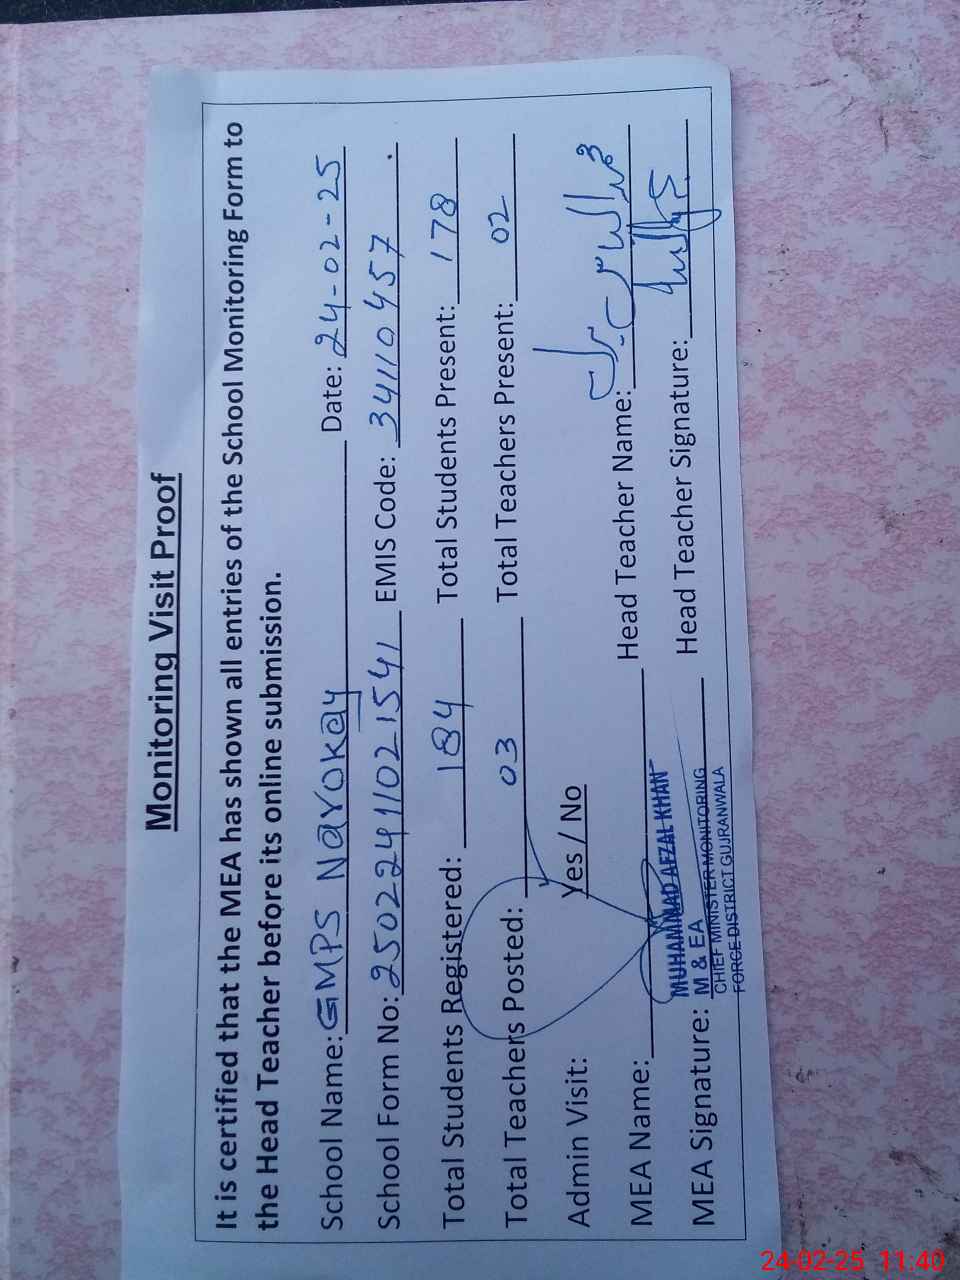 Monitoring Visit Proof
It is certified that the MEA has shown all entries of the School Monitoring Form to
the Head Teacher before its online submission.
School Name: GMPS Nayokay Date: 24-02-25
School Form No: 2502241102 1541 EMIS Code: 34110457
Total Students Registered: 184 Total Students Present: 178
Total Teachers Posted: 03 Total Teachers Present: 02
Admin Visit: Yes / No
MEA Name: Head Teacher Name: محمد الیاس
MUHAMMAD AFZAL KHAN
MEA Signature: M & EA Head Teacher Signature:
CHIEF MINISTER MONITORING
FORCE DISTRICT GUJRANWALA
24-02-25 11:40